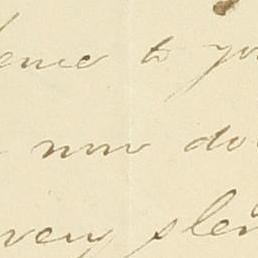 ence to yo
now do
very slen